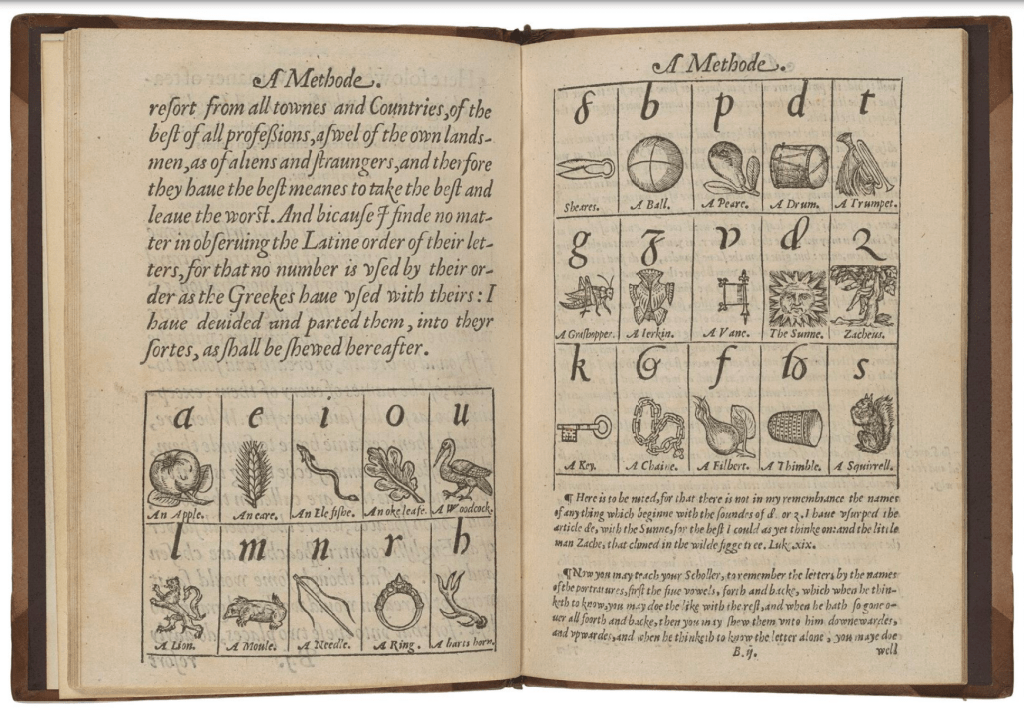 A Methode.
reſort from all townes and Countries, of the
beſt of all profeßions, aſwel of the own lands-
men, as of aliens and ſtraungers, and therfore
they haue the beſt meanes to take the beſt and
leaue the worſt. And bicauſe I finde no mat-
ter in obſeruing the Latine order of their let-
ters, for that no number is vſed by their or-
der as the Greekes haue vſed with theirs: I
haue deuided and parted them, into theyr
ſortes, as ſhall be ſhewed hereafter.
a e i o u
An Apple. An eare. An Ele fiſhe. An oke leafe. A Woodcock.
l m n r h
A Lion. A Moule. A Needle. A Ring. A harts horn.
reſort
A Methode.
b p d t
Sheares. A Ball. A Peare. A Drum. A Trumpet.
g v
A Graſhopper. A Ierkin. A Vane. The Sunne. Zacheus.
k f s
A Key. A Chaine. A Filbert. A Thimble. A Squirrell.
¶ Here is to be noted, for that there is not in my remembrance the names
of any thing which beginne with the ſoundes of or I haue vſurped the
article with the Sunne, for the beſt I could as yet thinke on: and the little
man Zache, that climed in the wilde figge tree. Luk. xix.
¶ Now you may teach your Scholler, to remember the letters, by the names
of the portratures, firſt the fiue vowels, forth and backe, which when he thin-
keth to know, you may doe the like with the reſt, and when he hath ſo gone o-
uer all foorth and backe, then you may ſhew them vnto him downewardes,
and vpwardes, and when he thinketh to know the letter alone, you maye doe
B. ij. well